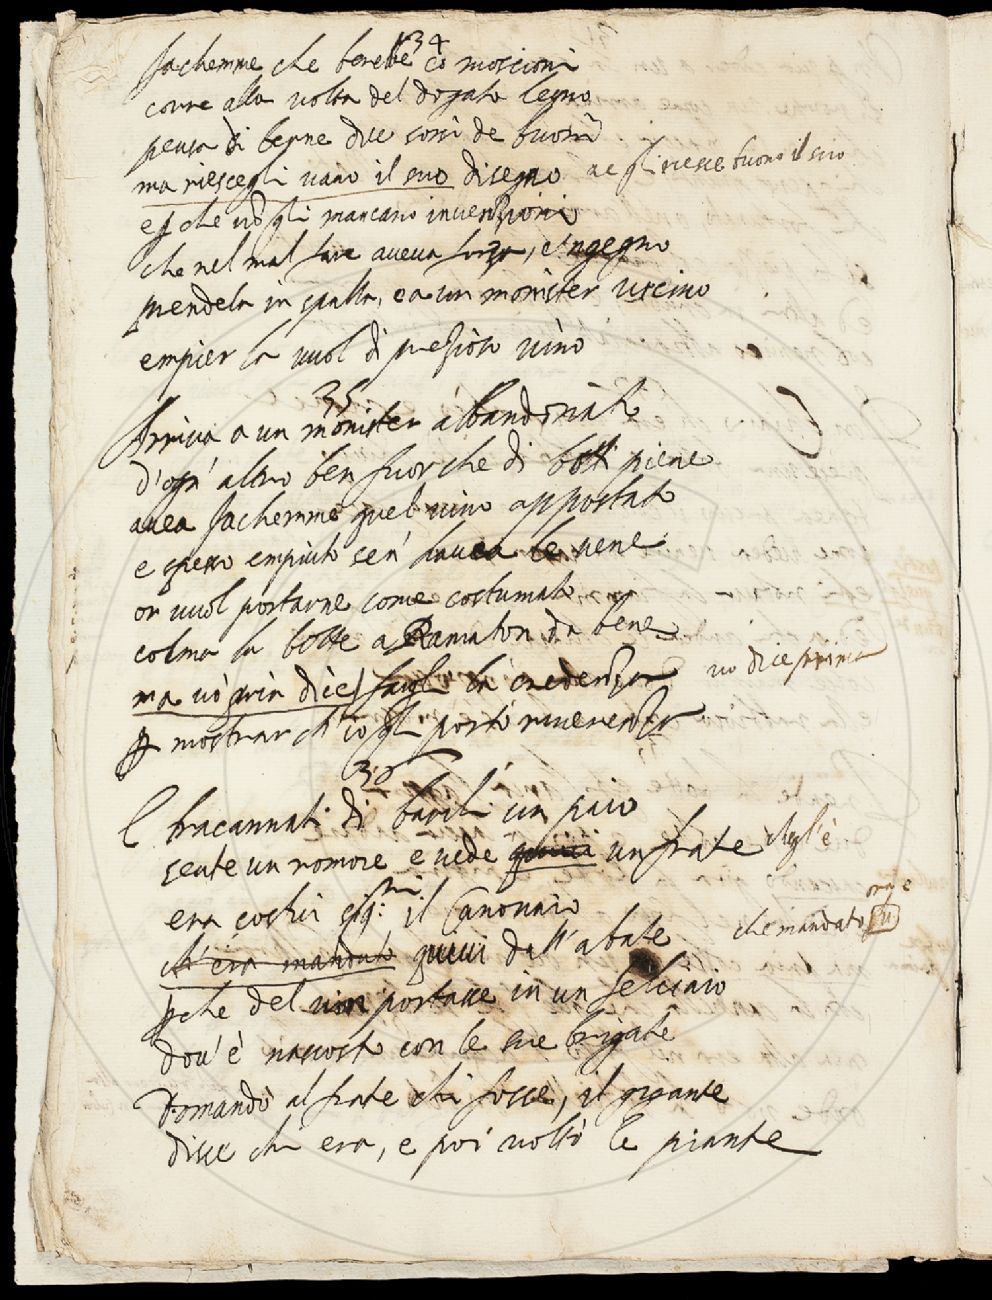 34
Sachemme che berebbe co moscioni
corre alla volta del dogato legno
pensa di berne due sorsi de buoni
ma riescegli vano il suo disegno ne gli riesce buono il suo
e pche nō gli mancano invenzioni
che nel mal fare aveva forza, e'ngegno
prendela in spalla, e a un monister vicino
empier la vuol di prezioso vino
35
Arriva a un monister abbandonato
d'ogn' altro ben fuor che di botti piene
avea Sachemme quel vino appostato
e spesso empiuto sen' aveva le vene
or vuol portarne come costumato
colma la botte a Ramaton da bene
ma vo' pria dice far la credenza vo dice prima
p mostrar ch'io gli porto riverenza
36
E tracannati di barili un paio
sente un romore e vede quivi un frate chegl'è
era costui il Canovaio
ch'era mandato quivi dall'abate che mandato
pche del vin portasse in un
dov'è nascosto con le sue brigate
Domandò al frate chi fosse, il gigante
disse chi era, e poi voltò le piante